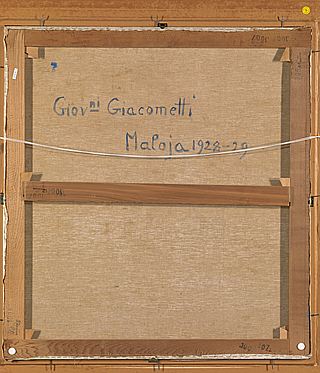 Giovni Giacometti
Maloja 1928-29